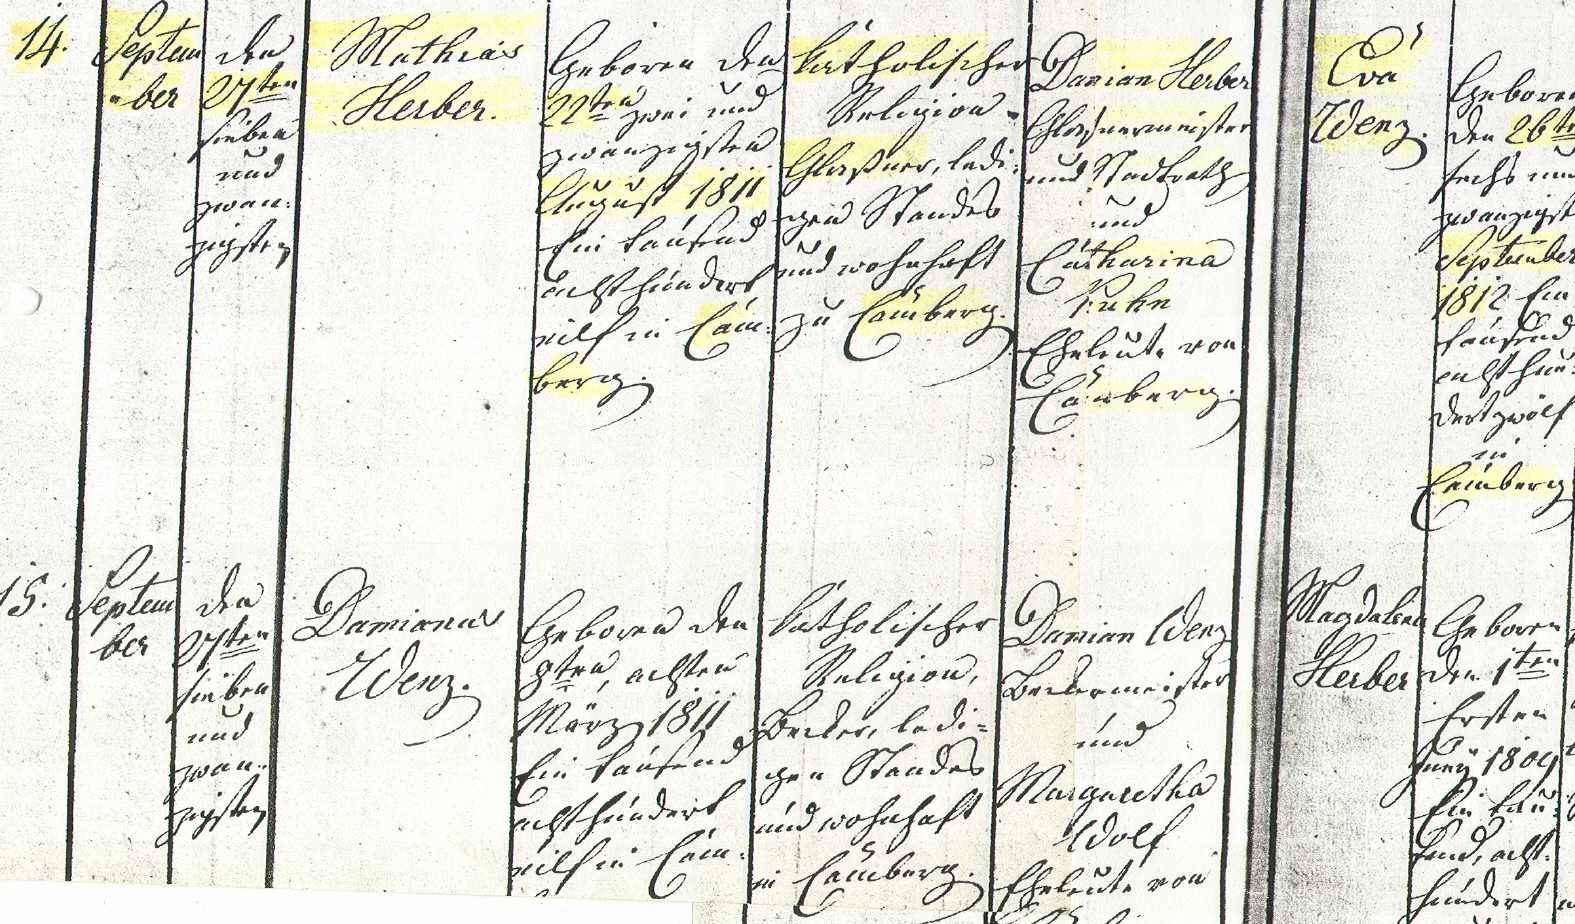 14.
Septem
ber
den
27ten
sieben
und
zwan-
zigsten
Mathias
Herber.
Geboren den
22ten zwei und
zwanzigsten
August 1811
Ein tausend
achthundert
eilf in Cam-
berg.
katholischer
Religion.
Glaßner, ledi-
gen Standes
und wohnhaft
zu Camberg.
Damian Herber
Glaßnermeister
und Stadtrath
und
Catharina
Eheleute von
Camberg.
Eva
Wenz.
Geboren
den 26te
sechs und
zwanzigst
September
1812 Ein
tausend
achthun-
dertzwölf
in
Camberg
15.
Septem
ber
den
27ten
sieben
und
zwan-
zigsten
Damianus
Wenz.
Geboren den
8ten, achten
März 1811
Ein tausend
achthundert
eilf in Cam-
katholischer
Religion,
Becker, ledi-
gen Standes
und wohnhaft
in Camberg.
Damian Wenz
Beckermeister
und
Margaretha
Wolf
Eheleute von
Magdalena
Herber
Geboren
den 1ten
Ersten
Juny 1809
Ein tau-
send, acht-
hundert